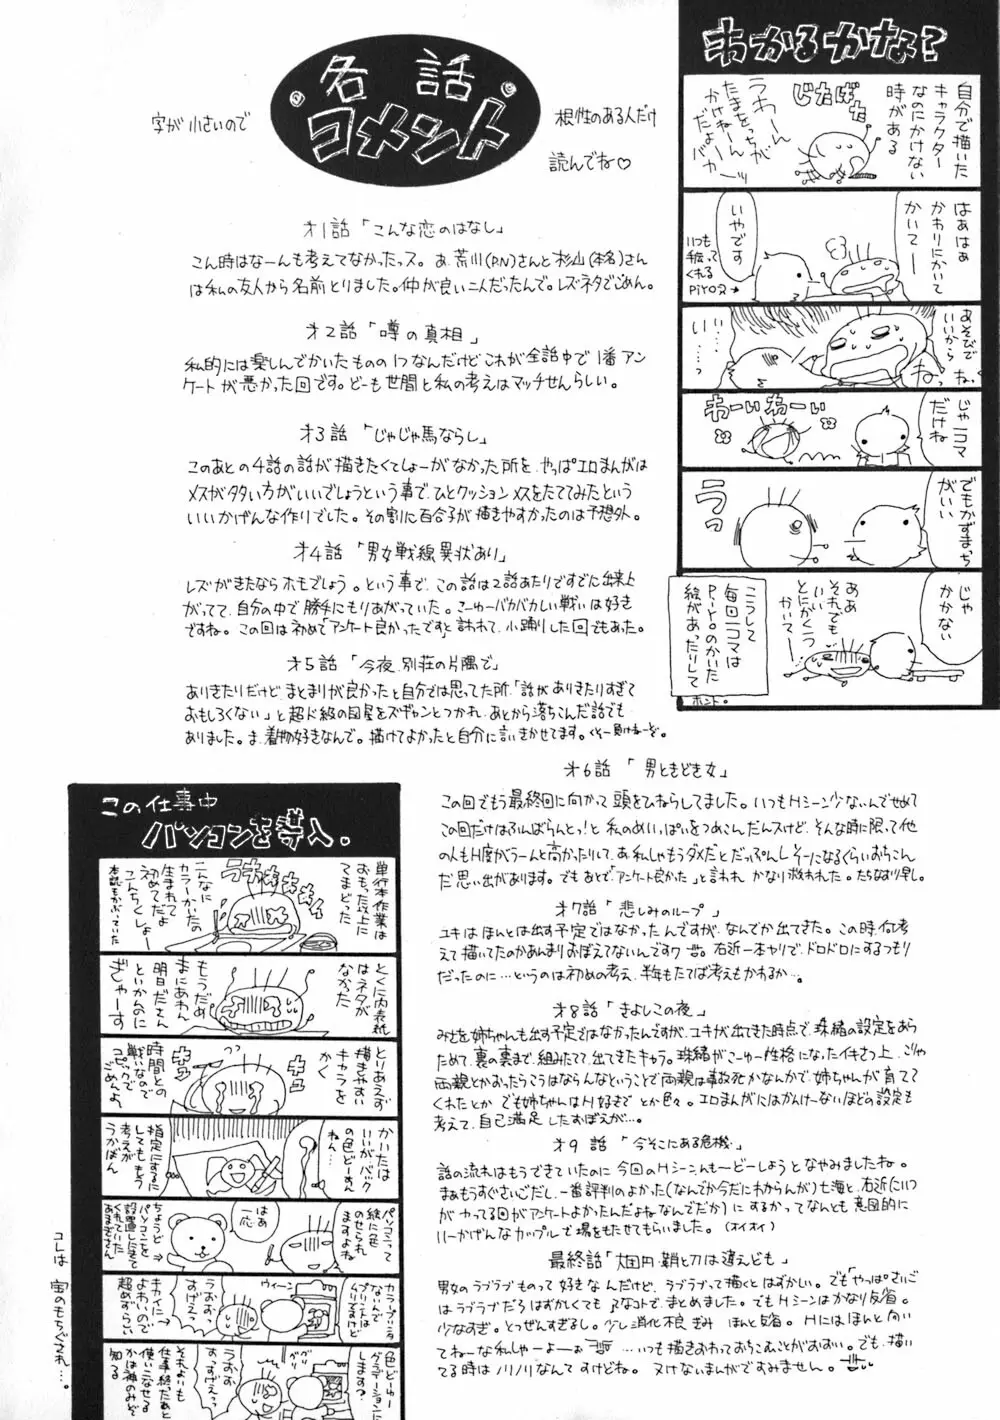 各話
コメント
字が小さいので
根性のある人だけ
読んでね♡
わかるかな?
自分で描いた
キャラクター
なのにかけない
時がある
じたばた
うわーん
たまをっちが
かけねーん
だよー
バーカーッ
はぁはぁ
かわりにかいて
かいてー
いやです
いつも
手伝って
くれる
PIYO2→
あそびで
いいから
ね、
ねっ
い…
い……っ
じゃ一コマ
だけね
わーいわーい
でもかずまっち
がいい
うっ
じゃ
かかない
ああ
それでも
いい
とにかくっ
かいてー
こうして
毎回一コマは
P.Y.O.のかいた
絵があったりして
ホント。
オ1話「こんな恋のはなし」
こん時はなーんも考えてなかったッス。あ、荒川(PN)さんと杉山(本名)さん
は私の友人から名前とりました。仲が良い二人だったんで。レズネタでごめん。
オ2話「噂の真相」
私的には楽しんでかいたものの1つなんだけどこれが全話中で1番アン
ケートが悪かった回です。どーも世間と私の考えはマッチせんらしい。
オ3話「じゃじゃ馬ならし」
このあとの4話の話が描きたくてしょーがなかった所を、やっぱエロまんがは
メスが多い方がいいでしょうという事で、ひとクッションメスをたててみたという
いいかげんな作りでした。その割に百合子が描きやすかったのは予想外。
オ4話「男女戦線異状あり」
レズがきたならホモでしょう。という事で、この話は2話あたりですでに出来上
がってて、自分の中で勝手にもりあがっていた。こーゆーバカバカしい戦いは好き
ですね。この回は初めて「アンケート良かったです」と言われて、小踊りした回でもあった。
オ5話「今夜、別荘の片隅で」
ありきたりだけどまとまりが良かったと自分では思ってた所、「話がありきたりすぎて
おもしろくない」と超ド級の図星をズギャンとつかれ、あとから落ちこんだ話でも
ありました。ま、着物好きなんで。描けてよかったと自分に言いきかせてます。くそー負けねーぞ。
オ6話「男ときどき女」
この回でもう最終回に向かって頭をひねらしてました。いつもHシーン少ないんでせめて
この回だけはふんばらんとっ!と私のめいっぱいをつめこんだんスけど、そんな時に限って他
の人もH度がうーんと高かったりして、あ私しゃもうダメだとだっぷんしそーになるぐらいおちこん
だ思い出があります。でもあとで「アンケート良かった」と言われかなり救われた。たちなおり早し。
オ7話「悲しみのループ」
ユキはほんとは出す予定ではなかったんですが、なんでか出てきた。この時何考
えて描いてたのかあんまりおぼえてないんですワ。右近一本ヤリで、ドロドロにするつもり
だったのに…というのは初めの考え、半年もたてば考えもかわるか…。
オ8話「きよしこの夜」
みさを姉ちゃんも出す予定ではなかったんですが、ユキが出てきた時点で、珠緒の設定をあら
ためて、裏の裏まで組みたてて、出てきたキャラ。珠緒がこーゆー性格になったイキさつ上、こりゃ
両親とかおったらこうはならんなということで両親は事故死かなんかで、姉ちゃんが育てて
くれたとか でも姉ちゃんはH好きでとか色々。エロまんがにはかんけーないほどの設定も
考えて、自己満足したおぼえが…。
オ9話「今そこにある危機」
話の流れはもうできていたのに今回のHシーンんも〜どーしようとなやみましたね。
まぁもうすぐさいごだし、一番評判のよかった(なんでか今だにわからんが)七海と、右近(こいつ
がヤってる回がアンケートよかったんだよね なんでだか)にするかってなんとも意図的に
いーかげんなカップルで場をもたせてもらいました。(オイオイ)
最終話「大団円・鞘と刀は違えども」
男女のラブラブものって好きなんだけど、ラブラブって描くとはずかしい。でも「やっぱさいご
はラブラブだろ はずかしくてもアなコトで、まとめました。でもHシーンはかなり反省。
少なすぎ。とつぜんすぎるし。少し消化不良ぎみ ほんと反省。Hにはほんと向い
てねーな私しゃーよーぉ …いつも描きおわっておちこむことがおおい。でも、描い
てる時はノリノリなんですけどね。ヌけないまんがですみません。
この仕事中
パソコンを導入。
単行本作業は
おもった以上に
てまどった
うきゃぁぁぁ
こんなに
カラーかいたの
生まれて
初めてだよ
こんちくしょー
とくに内表紙
はネタが
なかった
もうだめ
まにあわん
明日ださん
といかんのに
ぎゃーす
とりあえず
描きやすい
キャラを
かく
時間との
戦いなので
コピックで
ごめんよ
かいたは
いいがバック
の色どーすん
ねん…
指定にするに
してももう
考えが
うかばん
パソコンって
絵に色
のせられ
ますよね
はぁ
一応
ちょうど
パソコンを
設置しにきて
くれていた
あまぞさん
ウィーン
うおぉ
すげえっ
キカイに
よわいので
超めずらしい
色どーゆー
グラデーションに
します?
うおぉ
おっすげぇっ
それよいも
仕事終ったあと
使いこなせる
かは神のみぞ
知る
コレは宝のもちぐされ…。